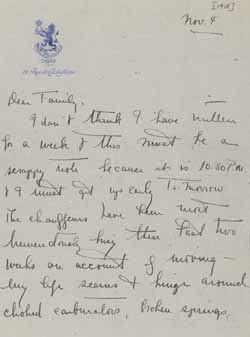 [1918]
Nov. 4
Dear Family,
I don't think I have written
for a week & this must be a
scrappy note because it is 10:30 P.M.
& I must get up early to-morrow
The chauffeurs have been most
tremendously busy these past two
weeks on account of moving -
my life seems to hinge around
choked carburators, broken springs,